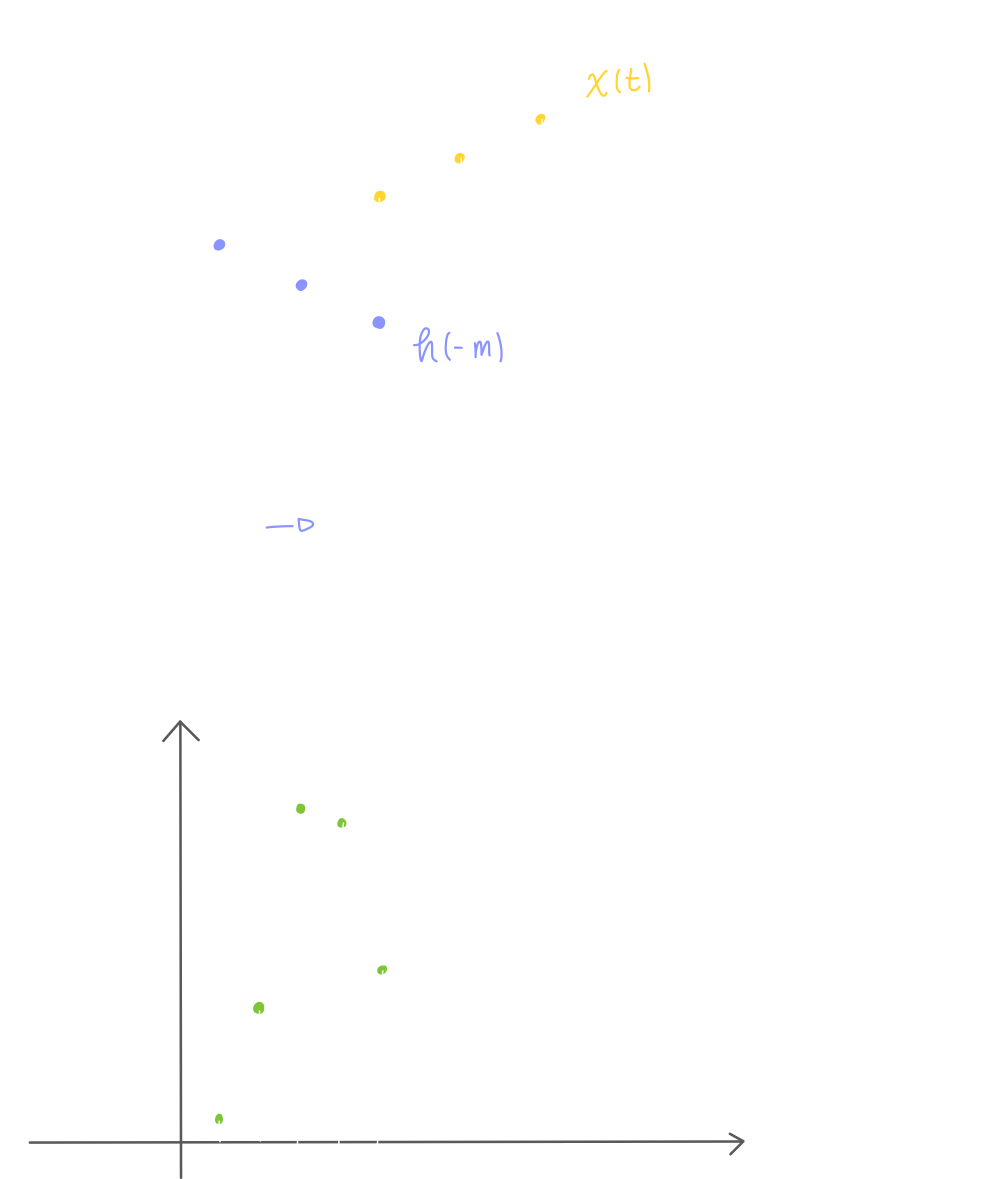 x(t)
h(-m)